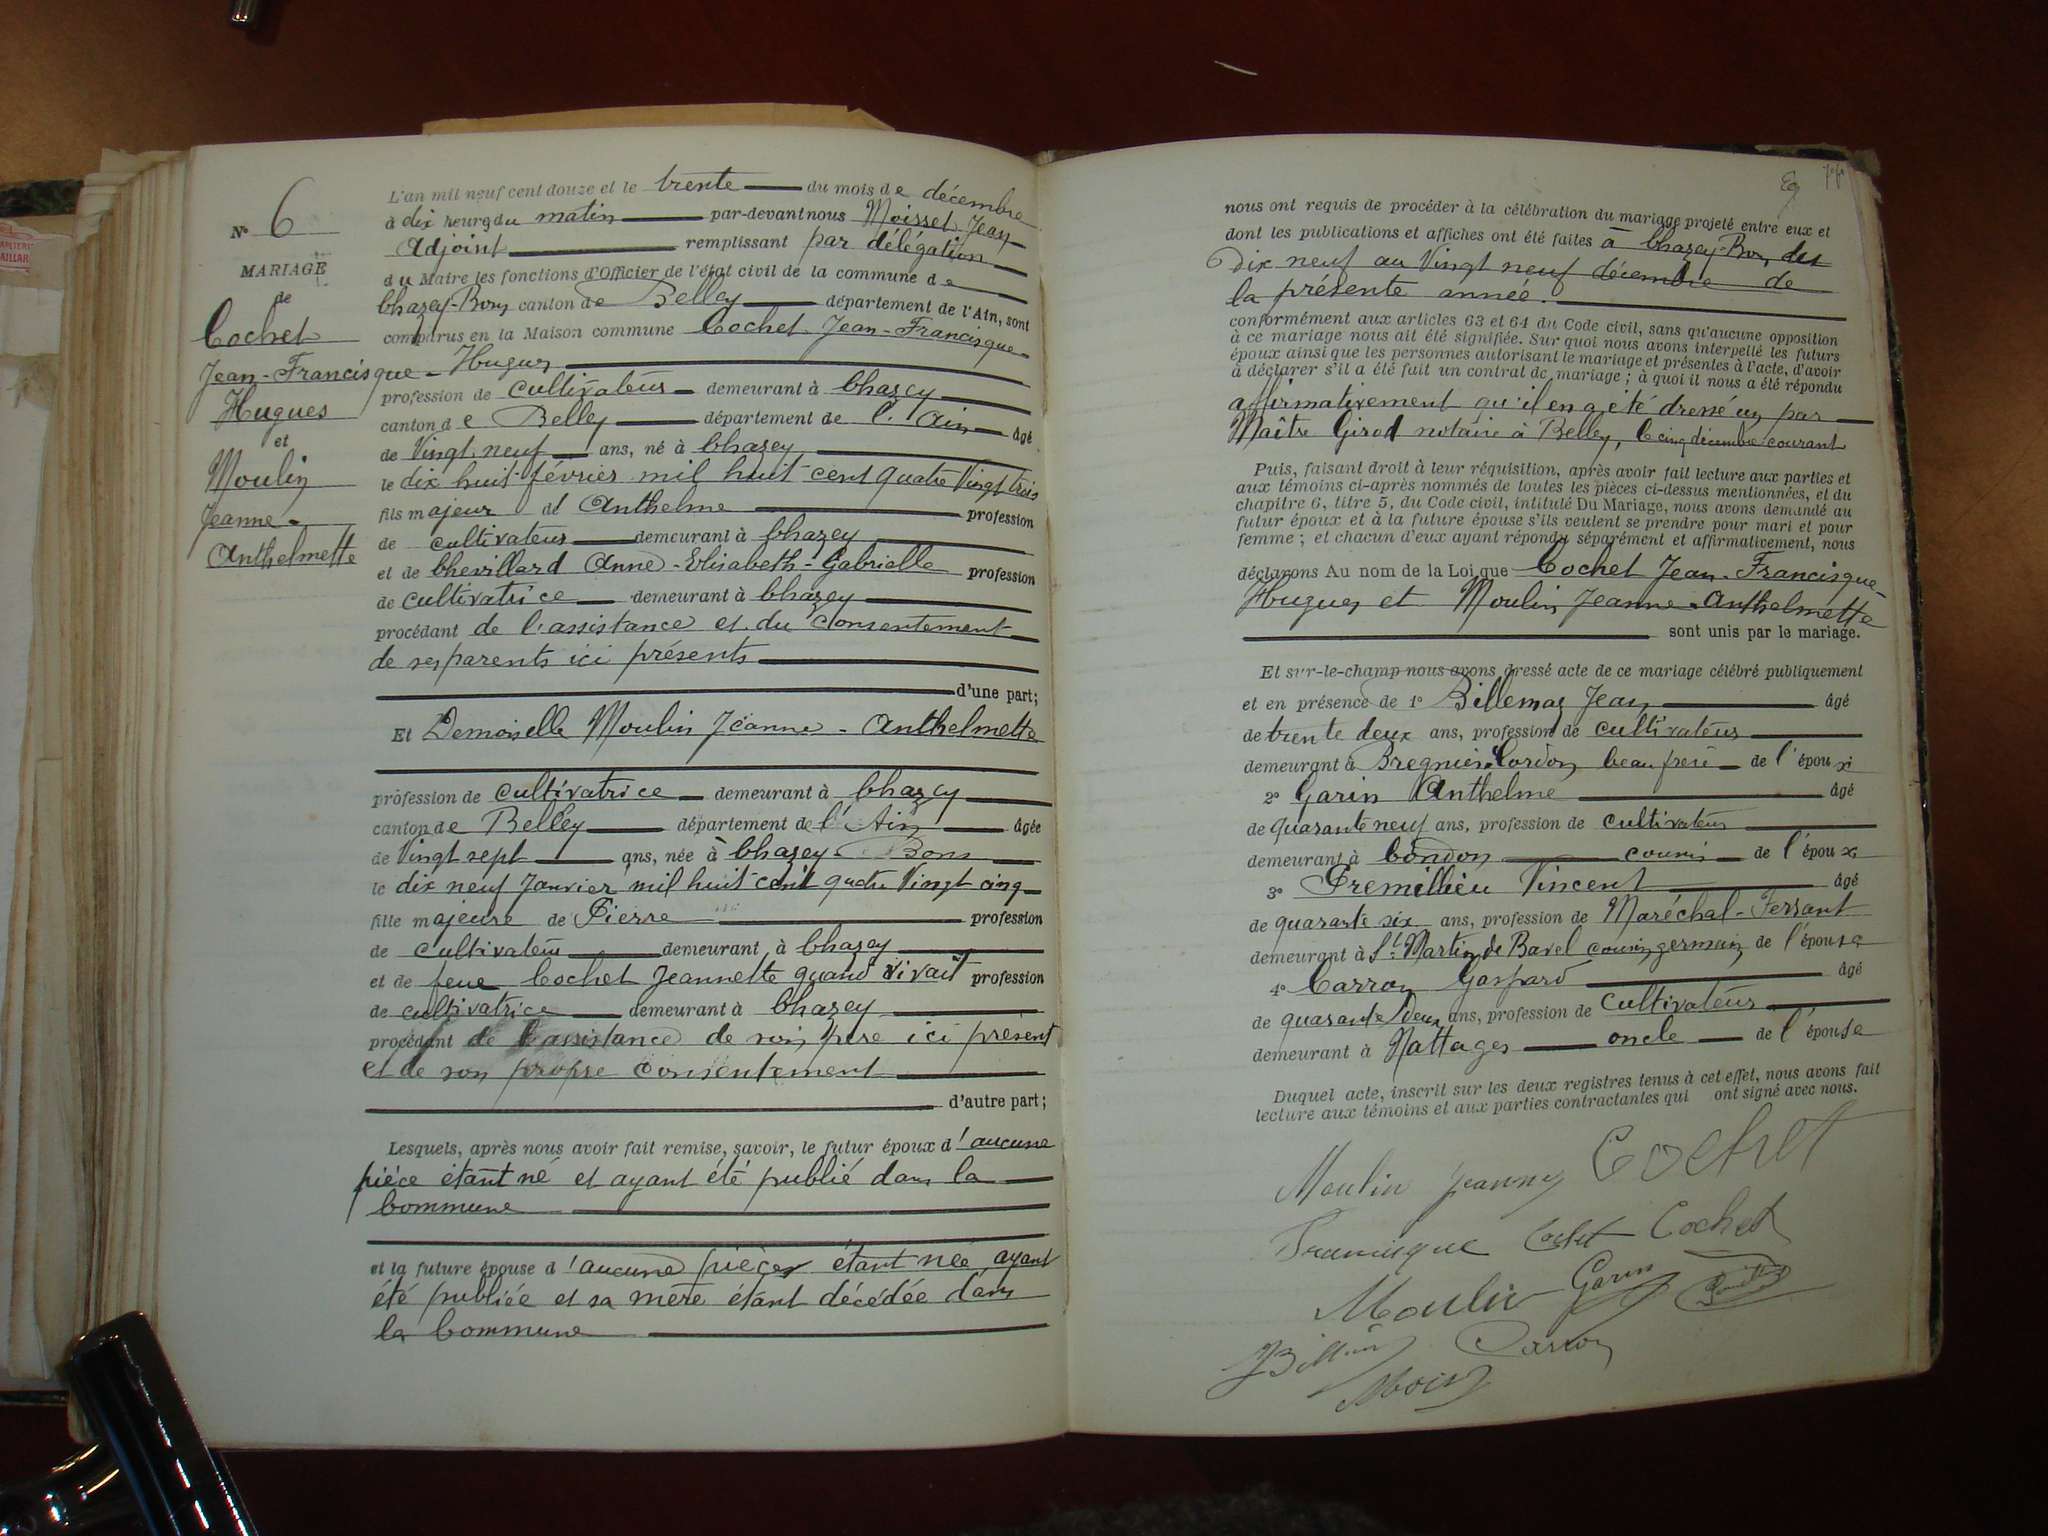 N° 6
MARIAGE
de
Cochet
Jean-Francisque-
Hugues
et
Moulin
Jeanne-
Anthelmette
L'an mil neuf cent douze et le trente du mois de décembre
à dix heures du matin par-devant nous Moisset Jean
Adjoint remplissant par délégation
du Maire les fonctions d'Officier de l'état civil de la commune de
Chazey-Bons canton de Belley département de l'Ain, sont
comparus en la Maison commune Cochet Jean-Francisque-
Hugues
profession de cultivateur demeurant à Chazey
canton de Belley département de l'Ain âgé
de Vingt neuf ans, né à Chazey
le dix huit février mil huit cent quatre Vingt trois
fils majeur de Anthelme profession
de cultivateur demeurant à Chazey
et de Chevillard Anne-Elisabeth-Gabrielle profession
de cultivatrice demeurant à Chazey
procédant de l'assistance et du consentement
de ses parents ici présents
d'une part;
Et Demoiselle Moulin Jeanne-Anthelmette
profession de cultivatrice demeurant à Chazey
canton de Belley département de l'Ain âgée
de Vingt sept ans, née à Chazey-Bons
le dix neuf Janvier mil huit cent quatre Vingt cinq
fille majeure de Pierre profession
de cultivateur demeurant à Chazey
et de feue Cochet Jeannette quand vivait profession
de cultivatrice demeurant à Chazey
procédant de l'assistance de son père ici présent
et de son propre consentement
d'autre part;
Lesquels, après nous avoir fait remise, savoir, le futur époux d'aucune
pièce étant né et ayant été publié dans la
Commune
et la future épouse d'aucune pièces étant née, ayant
été publiée et sa mère étant décédée dans
la Commune
nous ont requis de procéder à la célébration du mariage projeté entre eux et
dont les publications et affiches ont été faites à Chazey-Bons, des
Dix neuf au Vingt neuf décembre de
la présente année.
conformément aux articles 63 et 64 du Code civil, sans qu'aucune opposition
à ce mariage nous ait été signifiée. Sur quoi nous avons interpellé les futurs
époux ainsi que les personnes autorisant le mariage et présentes à l'acte, d'avoir
à déclarer s'il a été fait un contrat de mariage; à quoi il nous a été répondu
affirmativement qu'il en a été dressé un par
Maître Girod notaire à Belley, le cinq décembre courant
Puis, faisant droit à leur réquisition, après avoir fait lecture aux parties et
aux témoins ci-après nommés de toutes les pièces ci-dessus mentionnées, et du
chapitre 6, titre 5, du Code civil, intitulé Du Mariage, nous avons demandé au
futur époux et à la future épouse s'ils veulent se prendre pour mari et pour
femme; et chacun d'eux ayant répondu séparément et affirmativement, nous
déclarons Au nom de la Loi que Cochet Jean-Francisque-
Hugues et Moulin Jeanne-Anthelmette
sont unis par le mariage.
Et sur-le-champ nous avons dressé acte de ce mariage célébré publiquement
et en présence de 1° Billemaz Jean âgé
de trente deux ans, profession de cultivateur
demeurant à Bregnier-Cordon beau frère de l'époux
2° Garin Anthelme âgé
de quarante neuf ans, profession de cultivateur
demeurant à Condon cousin de l'époux
3° Premillieu Vincent âgé
de quarante six ans, profession de Maréchal-Ferrant
demeurant à St Martin de Bavel cousin germain de l'épouse
4° Carron Gaspard âgé
de quarante Deux ans, profession de Cultivateur
demeurant à Nattages oncle de l'épouse
Duquel acte, inscrit sur les deux registres tenus à cet effet, nous avons fait
lecture aux témoins et aux parties contractantes qui ont signé avec nous.
Moulin Jeanne Cochet
Francisque Cochet Cochet
Moulin Garin
Carron